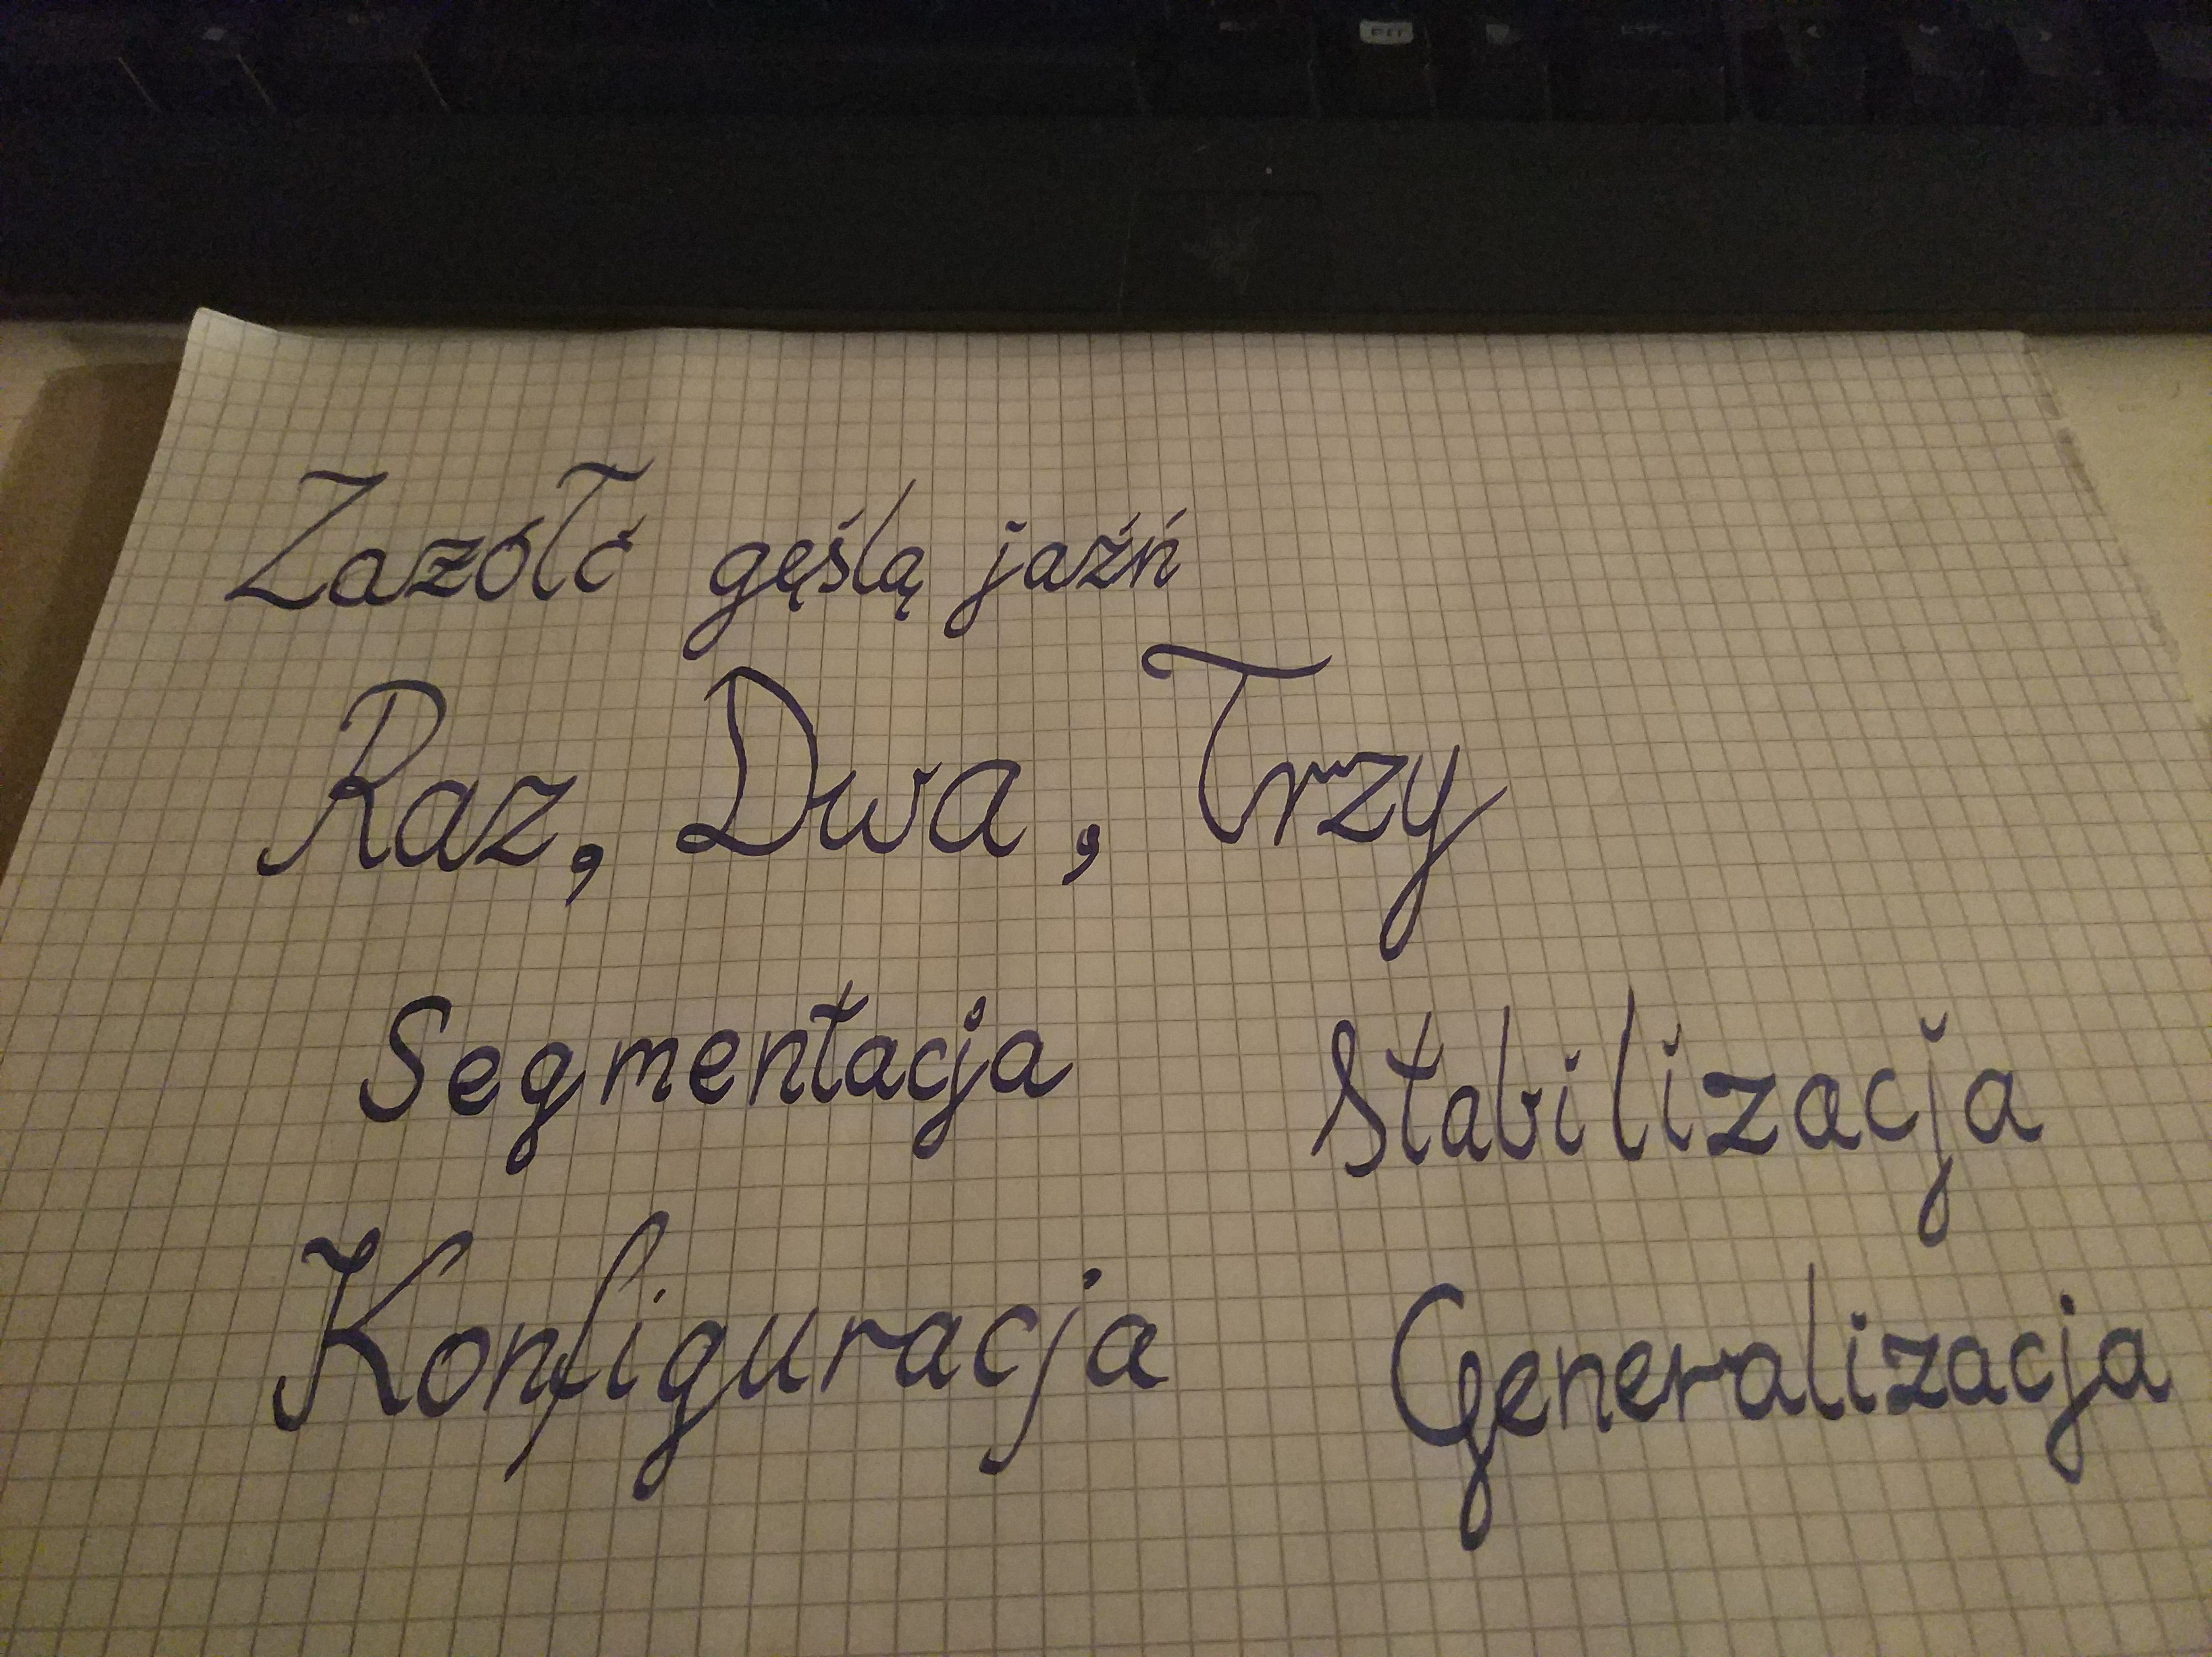 Zazółć gęślą jaźń
Raz, Dwa, Trzy
Segmentacja Stabilizacja
Konfiguracja Generalizacja